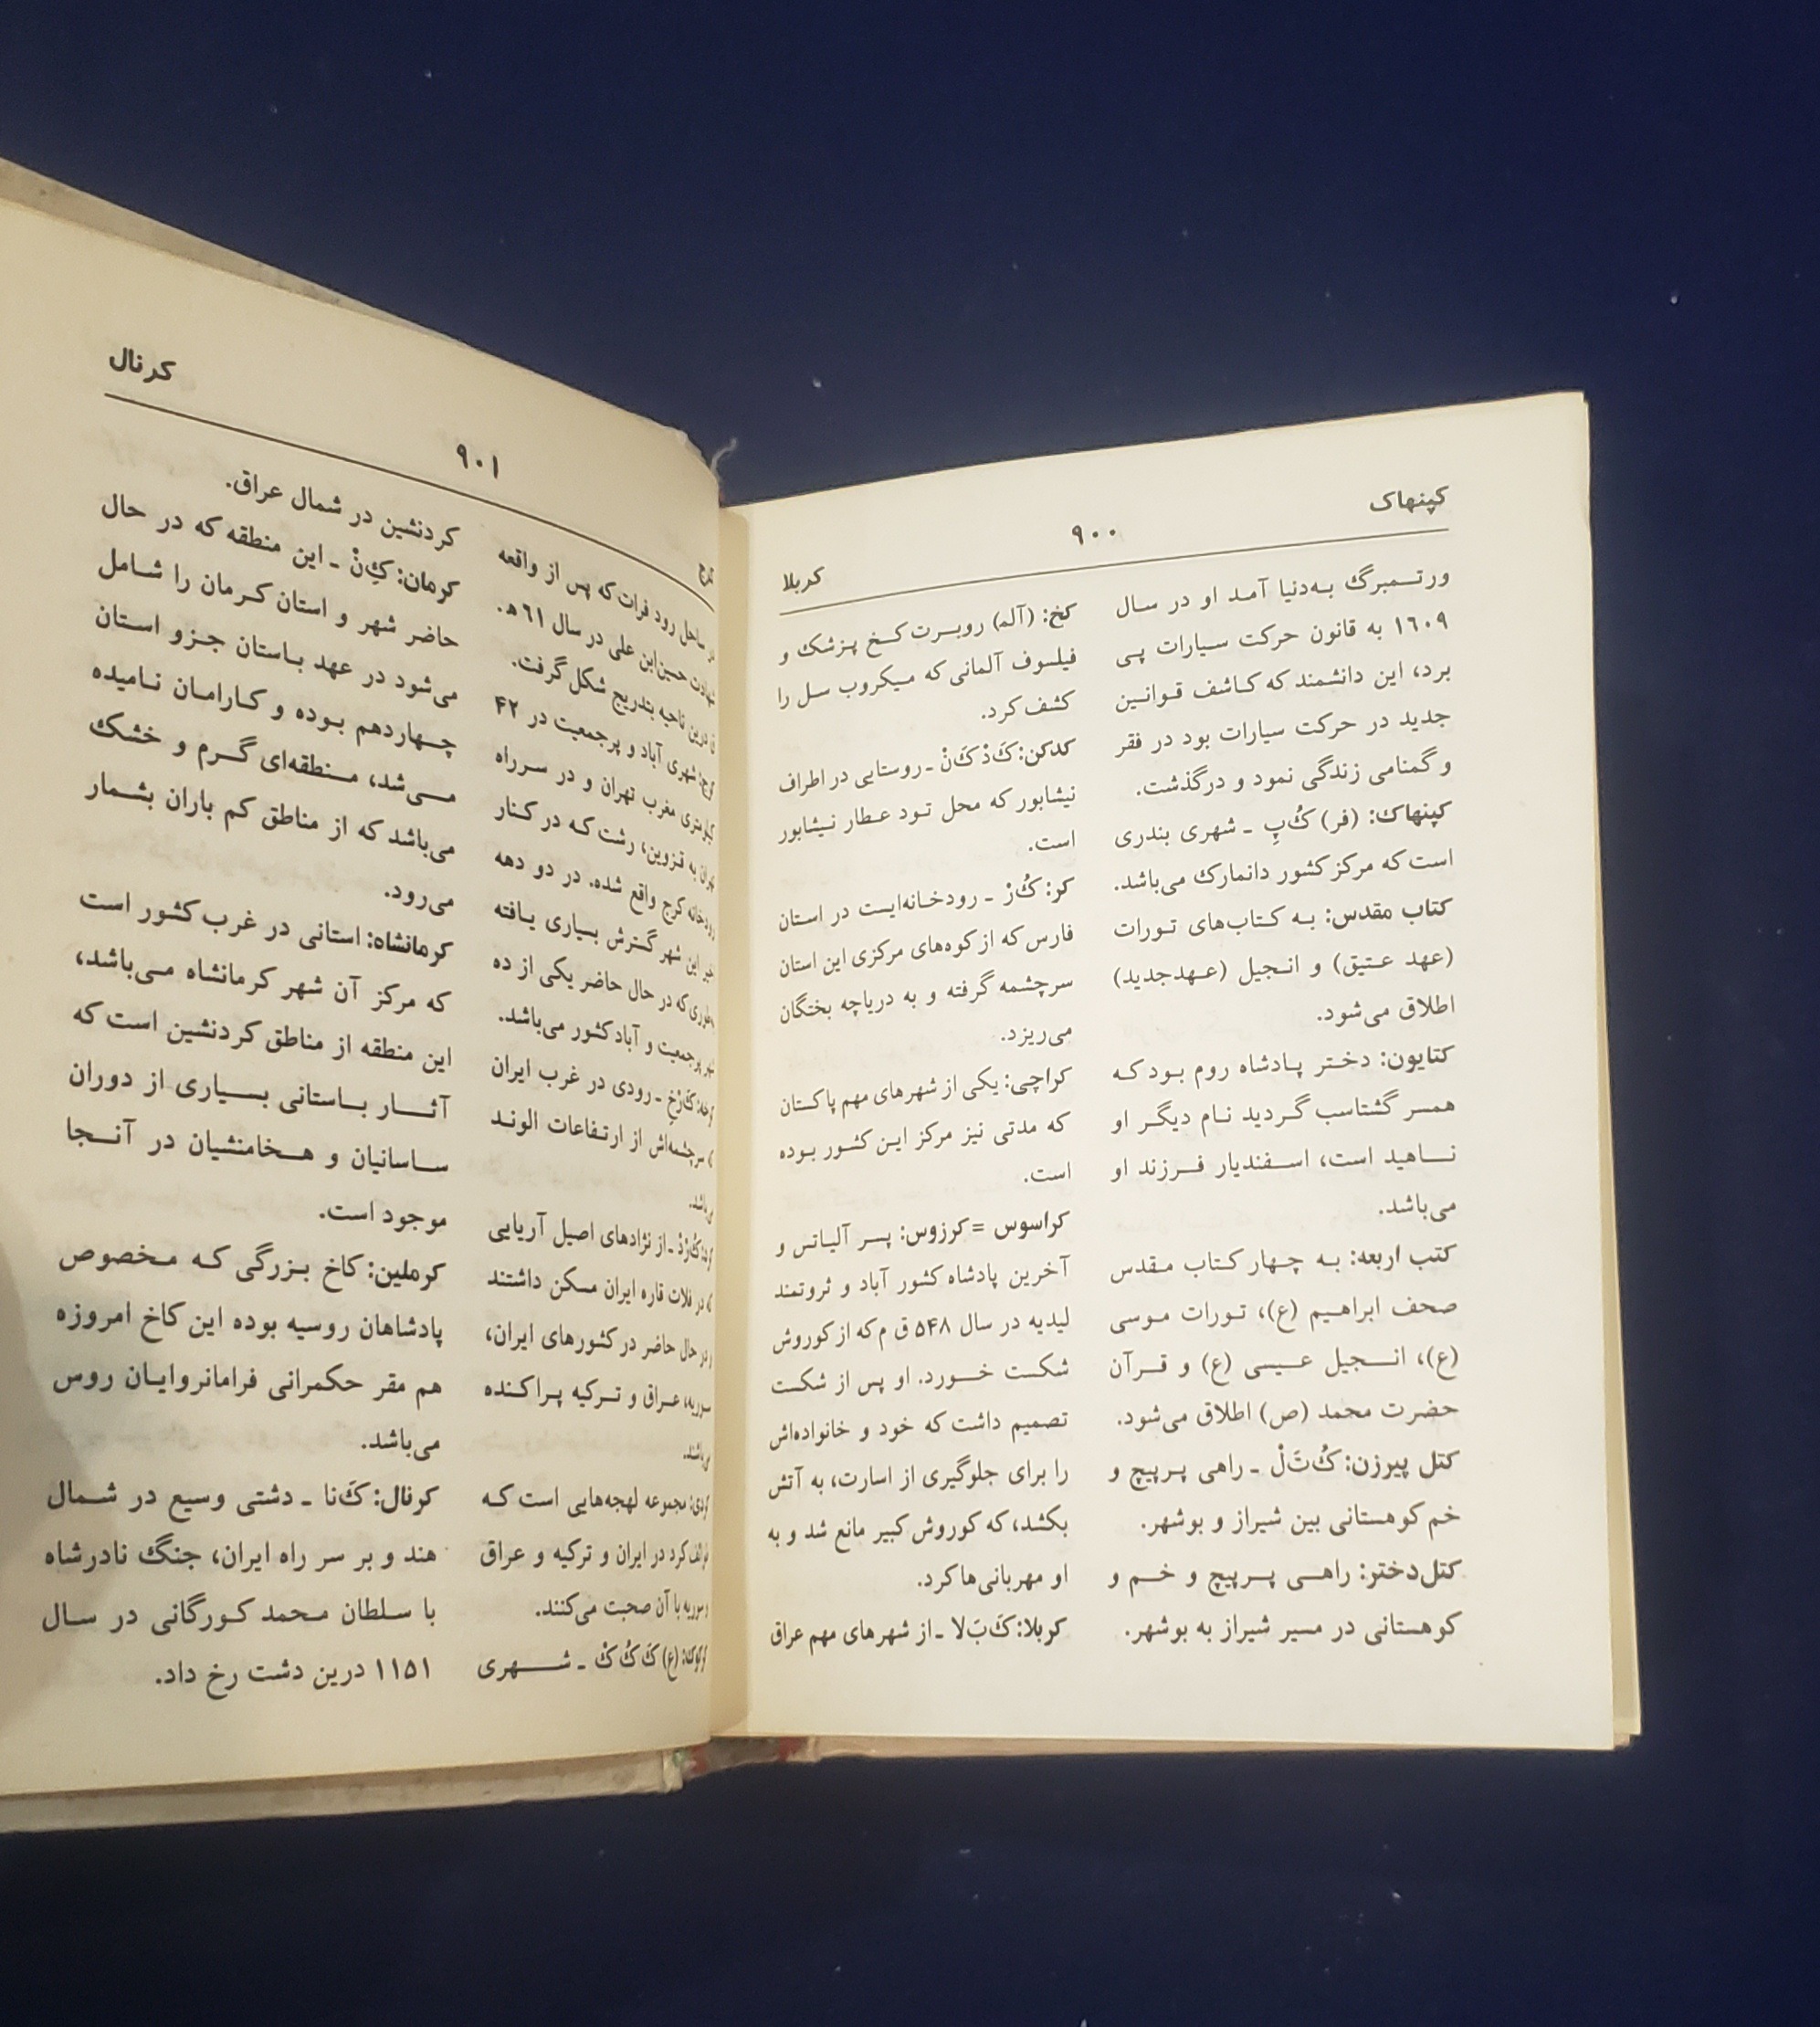 کپنهاک
۹۰۰
کربلا
ورتمبرگ به‌دنیا آمد او در سال
۱۶۰۹ به قانون حرکت سیارات پی
برد، این دانشمند که کاشف قوانین
جدید در حرکت سیارات بود در فقر
و گمنامی زندگی نمود و درگذشت.
کپنهاک: (فر) کُ‌پِ ـ شهری بندری
است که مرکز کشور دانمارک می‌باشد.
کتاب مقدس: به کتاب‌های تورات
(عهد عتیق) و انجیل (عهدجدید)
اطلاق می‌شود.
کتایون: دختر پادشاه روم بود که
همسر گشتاسب گردید نام دیگر او
ناهید است، اسفندیار فرزند او
می‌باشد.
کتب اربعه: به چهار کتاب مقدس
صحف ابراهیم (ع)، تورات موسی
(ع)، انجیل عیسی (ع) و قرآن
حضرت محمد (ص) اطلاق می‌شود.
کتل پیرزن: کُ‌تَ‌لْ ـ راهی پرپیچ و
خم کوهستانی بین شیراز و بوشهر.
کتل‌دختر: راهی پرپیچ و خم و
کوهستانی در مسیر شیراز به بوشهر.
کخ: (آلم) روبرت کخ پزشک و
فیلسوف آلمانی که میکروب سل را
کشف کرد.
کدکن: کَ‌دْکَ‌نْ ـ روستایی در اطراف
نیشابور که محل تود عطار نیشابور
است.
کر: کُ‌رْ ـ رودخانه‌ایست در استان
فارس که از کوه‌های مرکزی این استان
سرچشمه گرفته و به دریاچه بختگان
می‌ریزد.
کراچی: یکی از شهرهای مهم پاکستان
که مدتی نیز مرکز این کشور بوده
است.
کراسوس = کرزوس: پسر آلیاتس و
آخرین پادشاه کشور آباد و ثروتمند
لیدیه در سال ۵۴۸ ق م که از کوروش
شکست خورد. او پس از شکست
تصمیم داشت که خود و خانواده‌اش
را برای جلوگیری از اسارت، به آتش
بکشد، که کوروش کبیر مانع شد و به
او مهربانی‌ها کرد.
کربلا: کَ‌بَ‌لا ـ از شهرهای مهم عراق
کرج
۹۰۱
کرنال
ساحل رود فرات که پس از واقعه
شهادت حسین‌ابن علی در سال ۶۱ ه‍.
درین ناحیه بتدریج شکل گرفت.
کرج: شهری آباد و پرجمعیت در ۴۲
کیلومتری مغرب تهران و در سرراه
تهران به قزوین، رشت که در کنار
رودخانه کرج واقع شده. در دو دهه
اخیر این شهر گسترش بسیاری یافته
بطوری که در حال حاضر یکی از ده
شهر پرجمعیت و آباد کشور می‌باشد.
کرخه: کَ‌رْخِ ـ رودی در غرب ایران
سرچشمه‌اش از ارتفاعات الوند
می‌باشد.
کرد: کُ‌رْدْ ـ از نژادهای اصیل آریایی
که در فلات قاره ایران مسکن داشتند
و در حال حاضر در کشورهای ایران،
سوریه، عراق و ترکیه پراکنده
می‌باشند.
کردی: مجموعه لهجه‌هایی است که
کرد در ایران و ترکیه و عراق
و سوریه با آن صحبت می‌کنند.
کرکوک: (ع) کَ‌کُ‌کْ ـ شهری
کردنشین در شمال عراق.
کرمان: کِ‌نْ ـ این منطقه که در حال
حاضر شهر و استان کرمان را شامل
می‌شود در عهد باستان جزو استان
چهاردهم بوده و کارامان نامیده
می‌شد، منطقه‌ای گرم و خشک
می‌باشد که از مناطق کم باران بشمار
می‌رود.
کرمانشاه: استانی در غرب کشور است
که مرکز آن شهر کرمانشاه می‌باشد،
این منطقه از مناطق کردنشین است که
آثار باستانی بسیاری از دوران
ساسانیان و هخامنشیان در آنجا
موجود است.
کرملین: کاخ بزرگی که مخصوص
پادشاهان روسیه بوده این کاخ امروزه
هم مقر حکمرانی فرامانروایان روس
می‌باشد.
کرنال: کَ‌نا ـ دشتی وسیع در شمال
هند و بر سر راه ایران، جنگ نادرشاه
با سلطان محمد کورگانی در سال
۱۱۵۱ درین دشت رخ داد.